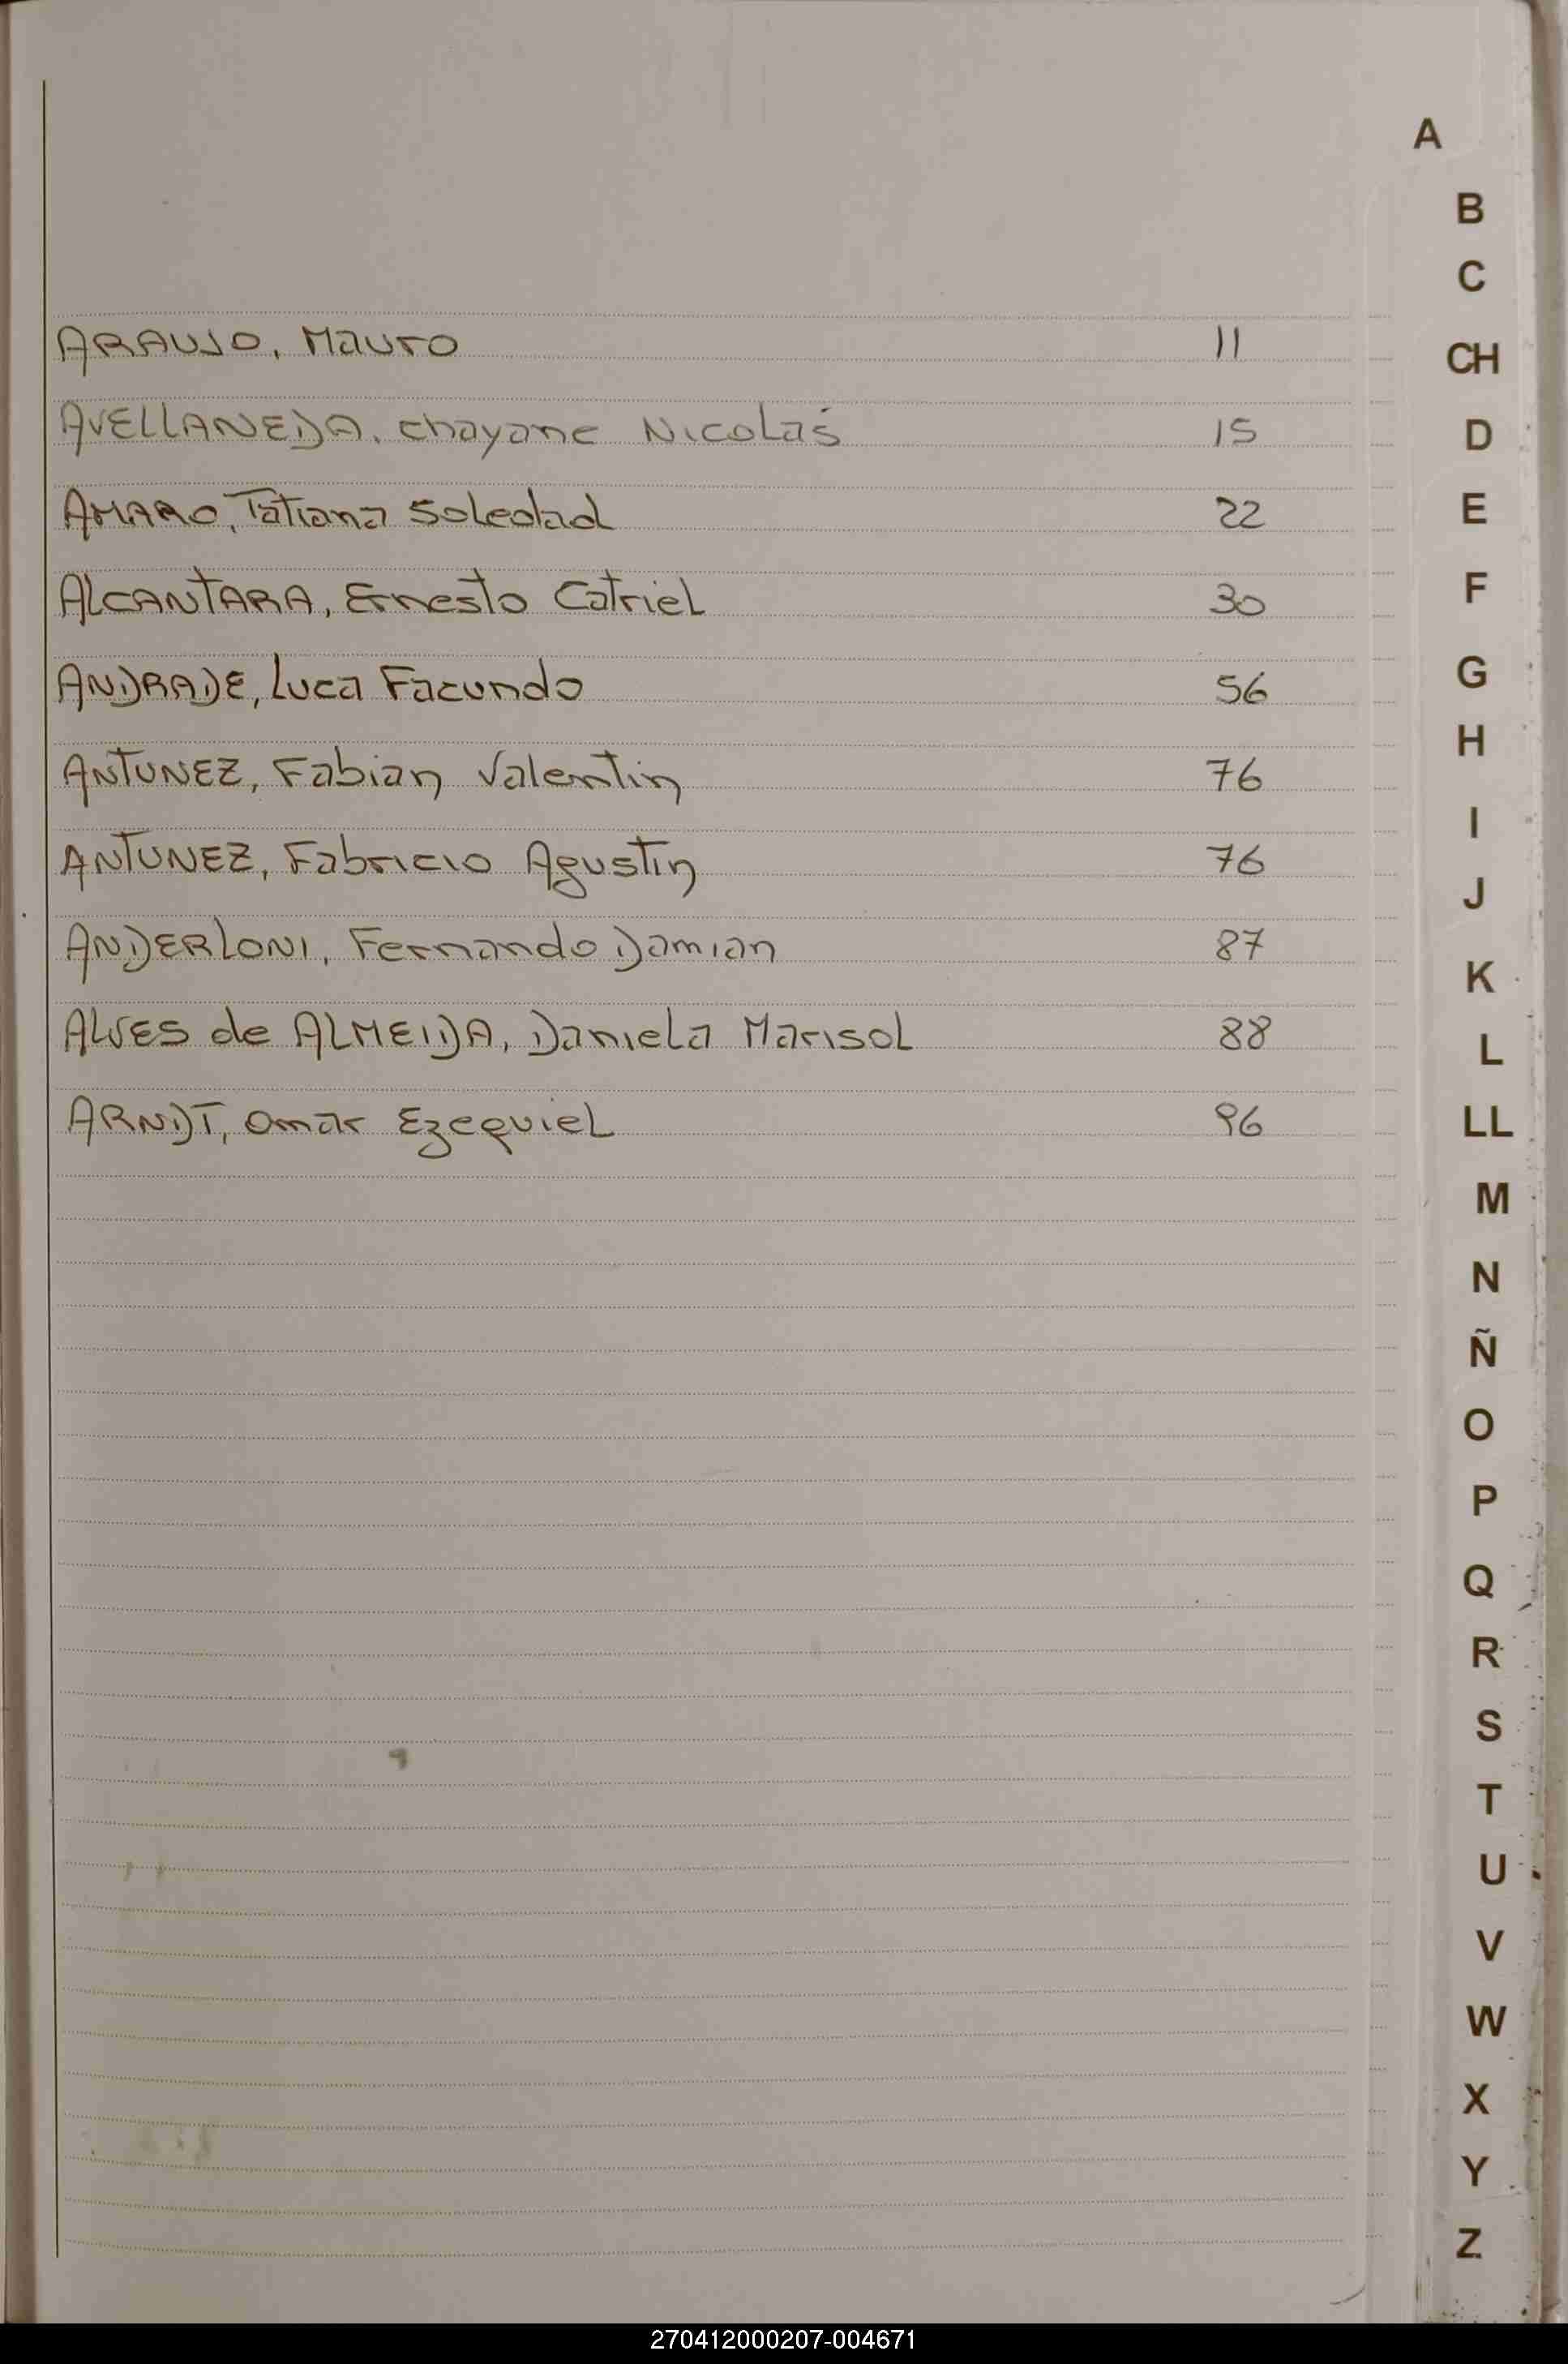 A
B
C
ARAUJO, Mauro 11
CH
AVELLANEDA, chayane Nicolás 15
D
AMARO, Tatiana Soledad 22
E
ALCANTARA, Ernesto Catriel 30
F
ANDRADE, Luca Facundo 56
G
H
ANTUNEZ, Fabian Valentin 76
I
ANTUNEZ, Fabricio Agustin 76
J
ANDERLONI, Fernando Damian 87
K
ALVES de ALMEIDA, Daniela Marisol 88
L
ARNDT, Omar Ezequiel 96
LL
M
N
Ñ
O
P
Q
R
S
T
U
V
W
X
Y
Z
270412000207-004671